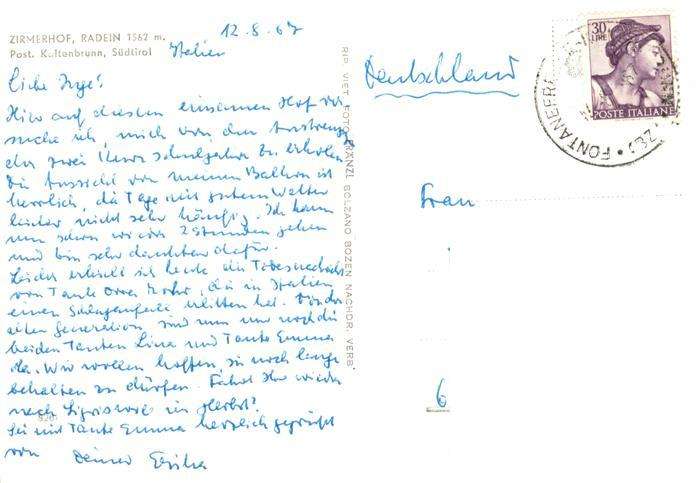 ZIRMERHOF, RADEIN 1562 m.
Post. Kaltenbrunn, Südtirol
12.8.67
Italien
Liebe Inge!
Hier auf diesem einsamen Hof ver-
suche ich, mich von den
der zwei Kurzschuljahre zu erholen.
Die Aussicht von meinem Balkon ist
herrlich, die Tage mit gutem Wetter
leider nicht sehr häufig. Ich kann
nun schon wieder 2 Stunden gehen
und bin sehr dankbar dafür.
Leider erhielt ich heute die Todesnachricht
von Tante, die in Italien
einen Schlaganfall erlitten hat. Von der
alten Generation sind nun nur noch die
beiden Tanten Lina und Tante Emma
da. Wir wollen hoffen, sie noch lange
behalten zu dürfen. Fährt Ihr wieder
nach im Herbst?
Sei mit Tante Emma herzlich gegrüßt
von Deiner Erika
RIP. VIET. FOTO FRÄNZL BOLZANO BOZEN NACHDR. VERB.
Deutschland
30 LIRE
POSTE ITALIANE
FONTANEFR
(BZ)
Frau
6